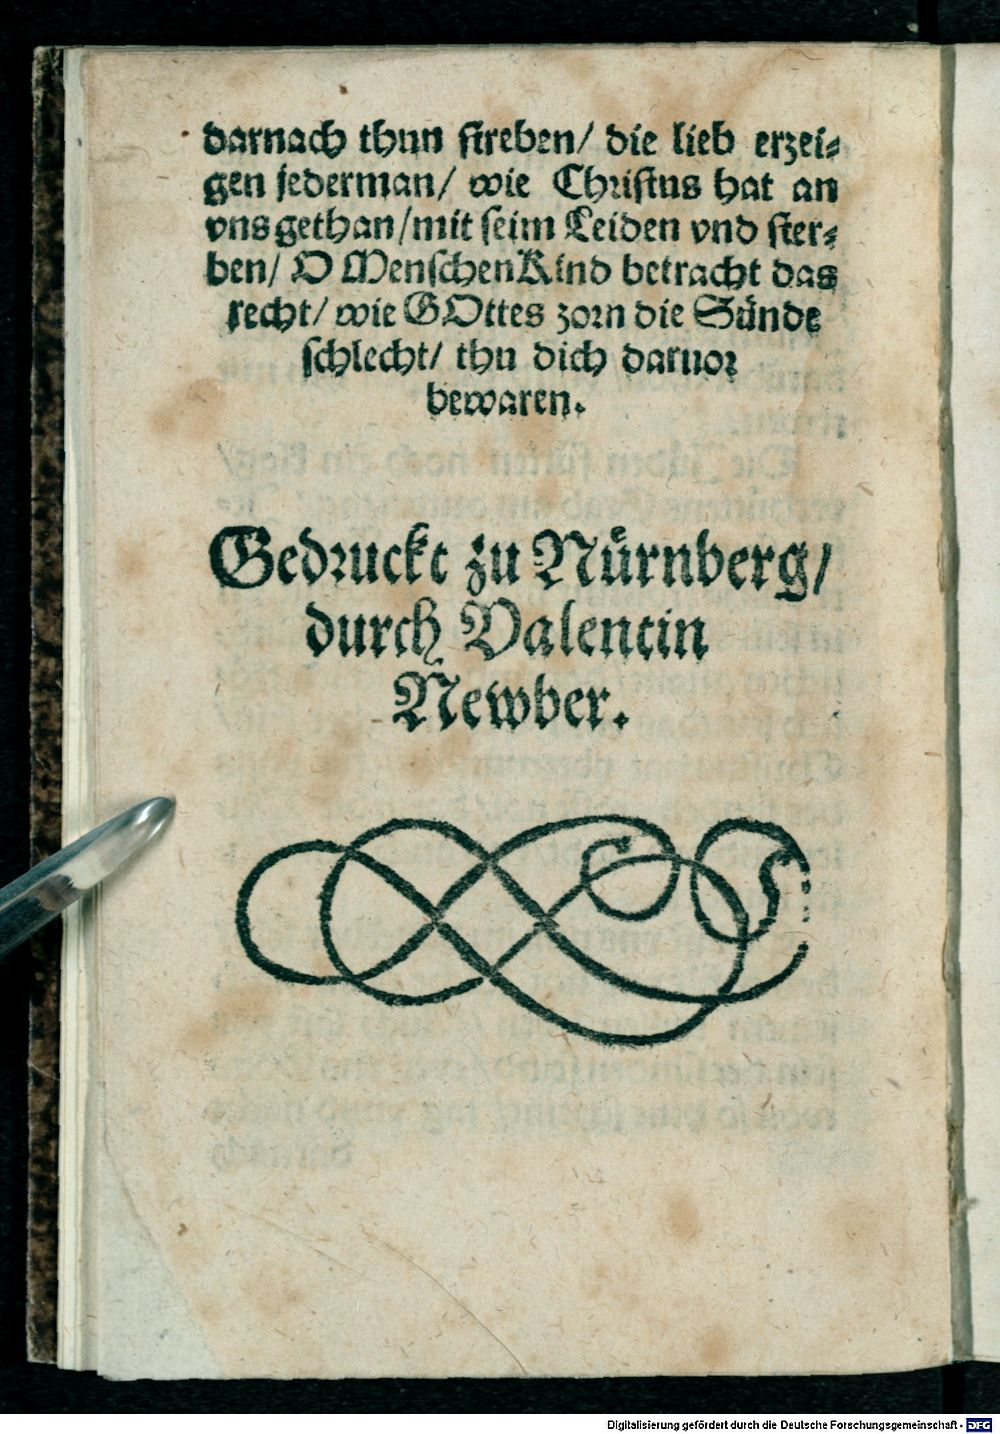 darnach thun streben/ die lieb erzei⸗
gen jederman/ wie Christus hat an
vns gethan/mit seim Leiden vnd ster⸗
ben/ O MenschenKind betracht das
recht/ wie GOttes zorn die Sünde
schlecht/ thu dich daruor
bewaren.
Gedruckt zu Nürnberg/
durch Valentin
Newber.
Digitalisierung gefördert durch die Deutsche Forschungsgemeinschaft - DFG